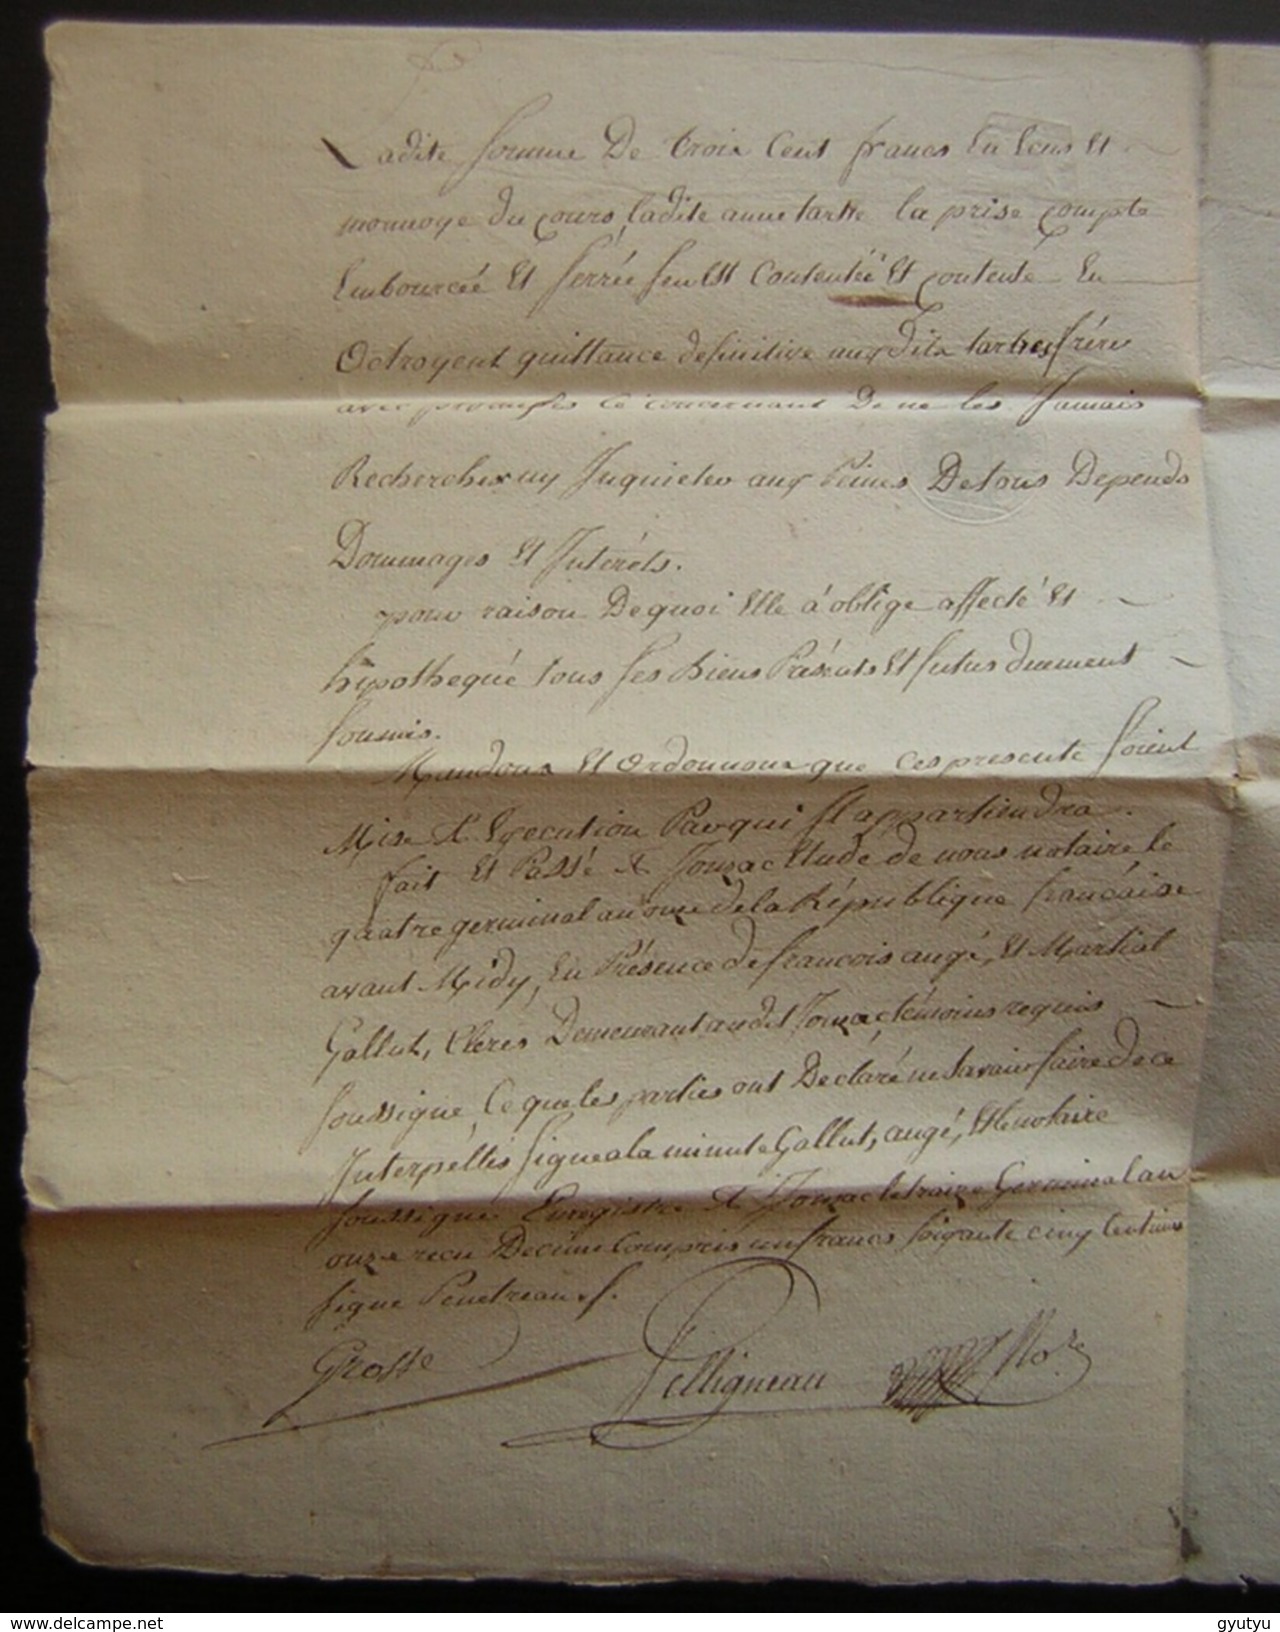 Ladite somme De trois Cent francs En Ecus Et
monnoye du cours, ladite anne tartre la prise compte
Embourcée Et serrée sen Est Contentée Et contente En
Octroyent quittance definitive aux Dits tartres frères
avec promesse ce concernant De ne les Jamais
Rechercher ny Inquieter aux Peines De tous Depends
Dommages Et Interéts.
pour raison De quoi Elle á oblige affecté Et
hipothequé tous ses Biens Présents Et futurs duement
soumis.
Mandons Et Ordonnons que ces presente soient
Mise à Execution Par qui Il appartiendra.
fait Et Passé à Jonzac Etude de nous notaire le
quatre germinal an onze de la République francaise
avant Midy, En Présence de francois augé, Et Martial
Gallut, Clercs Demeurant audit Jonzac, témoins requis
soussigne, Ce que les parties ont Declaré ne savoir faire de ce
Interpéllés signe a la minute Gallut, augé, Et le notaire
soussigne Enregistre à Jonzac le traize Germinal an
onze recu Decime Compris un francs soixante cinq Centimes
signe Penetreau .f.
Grosse Pelligneau No.re
www.delcampe.net gyutyu